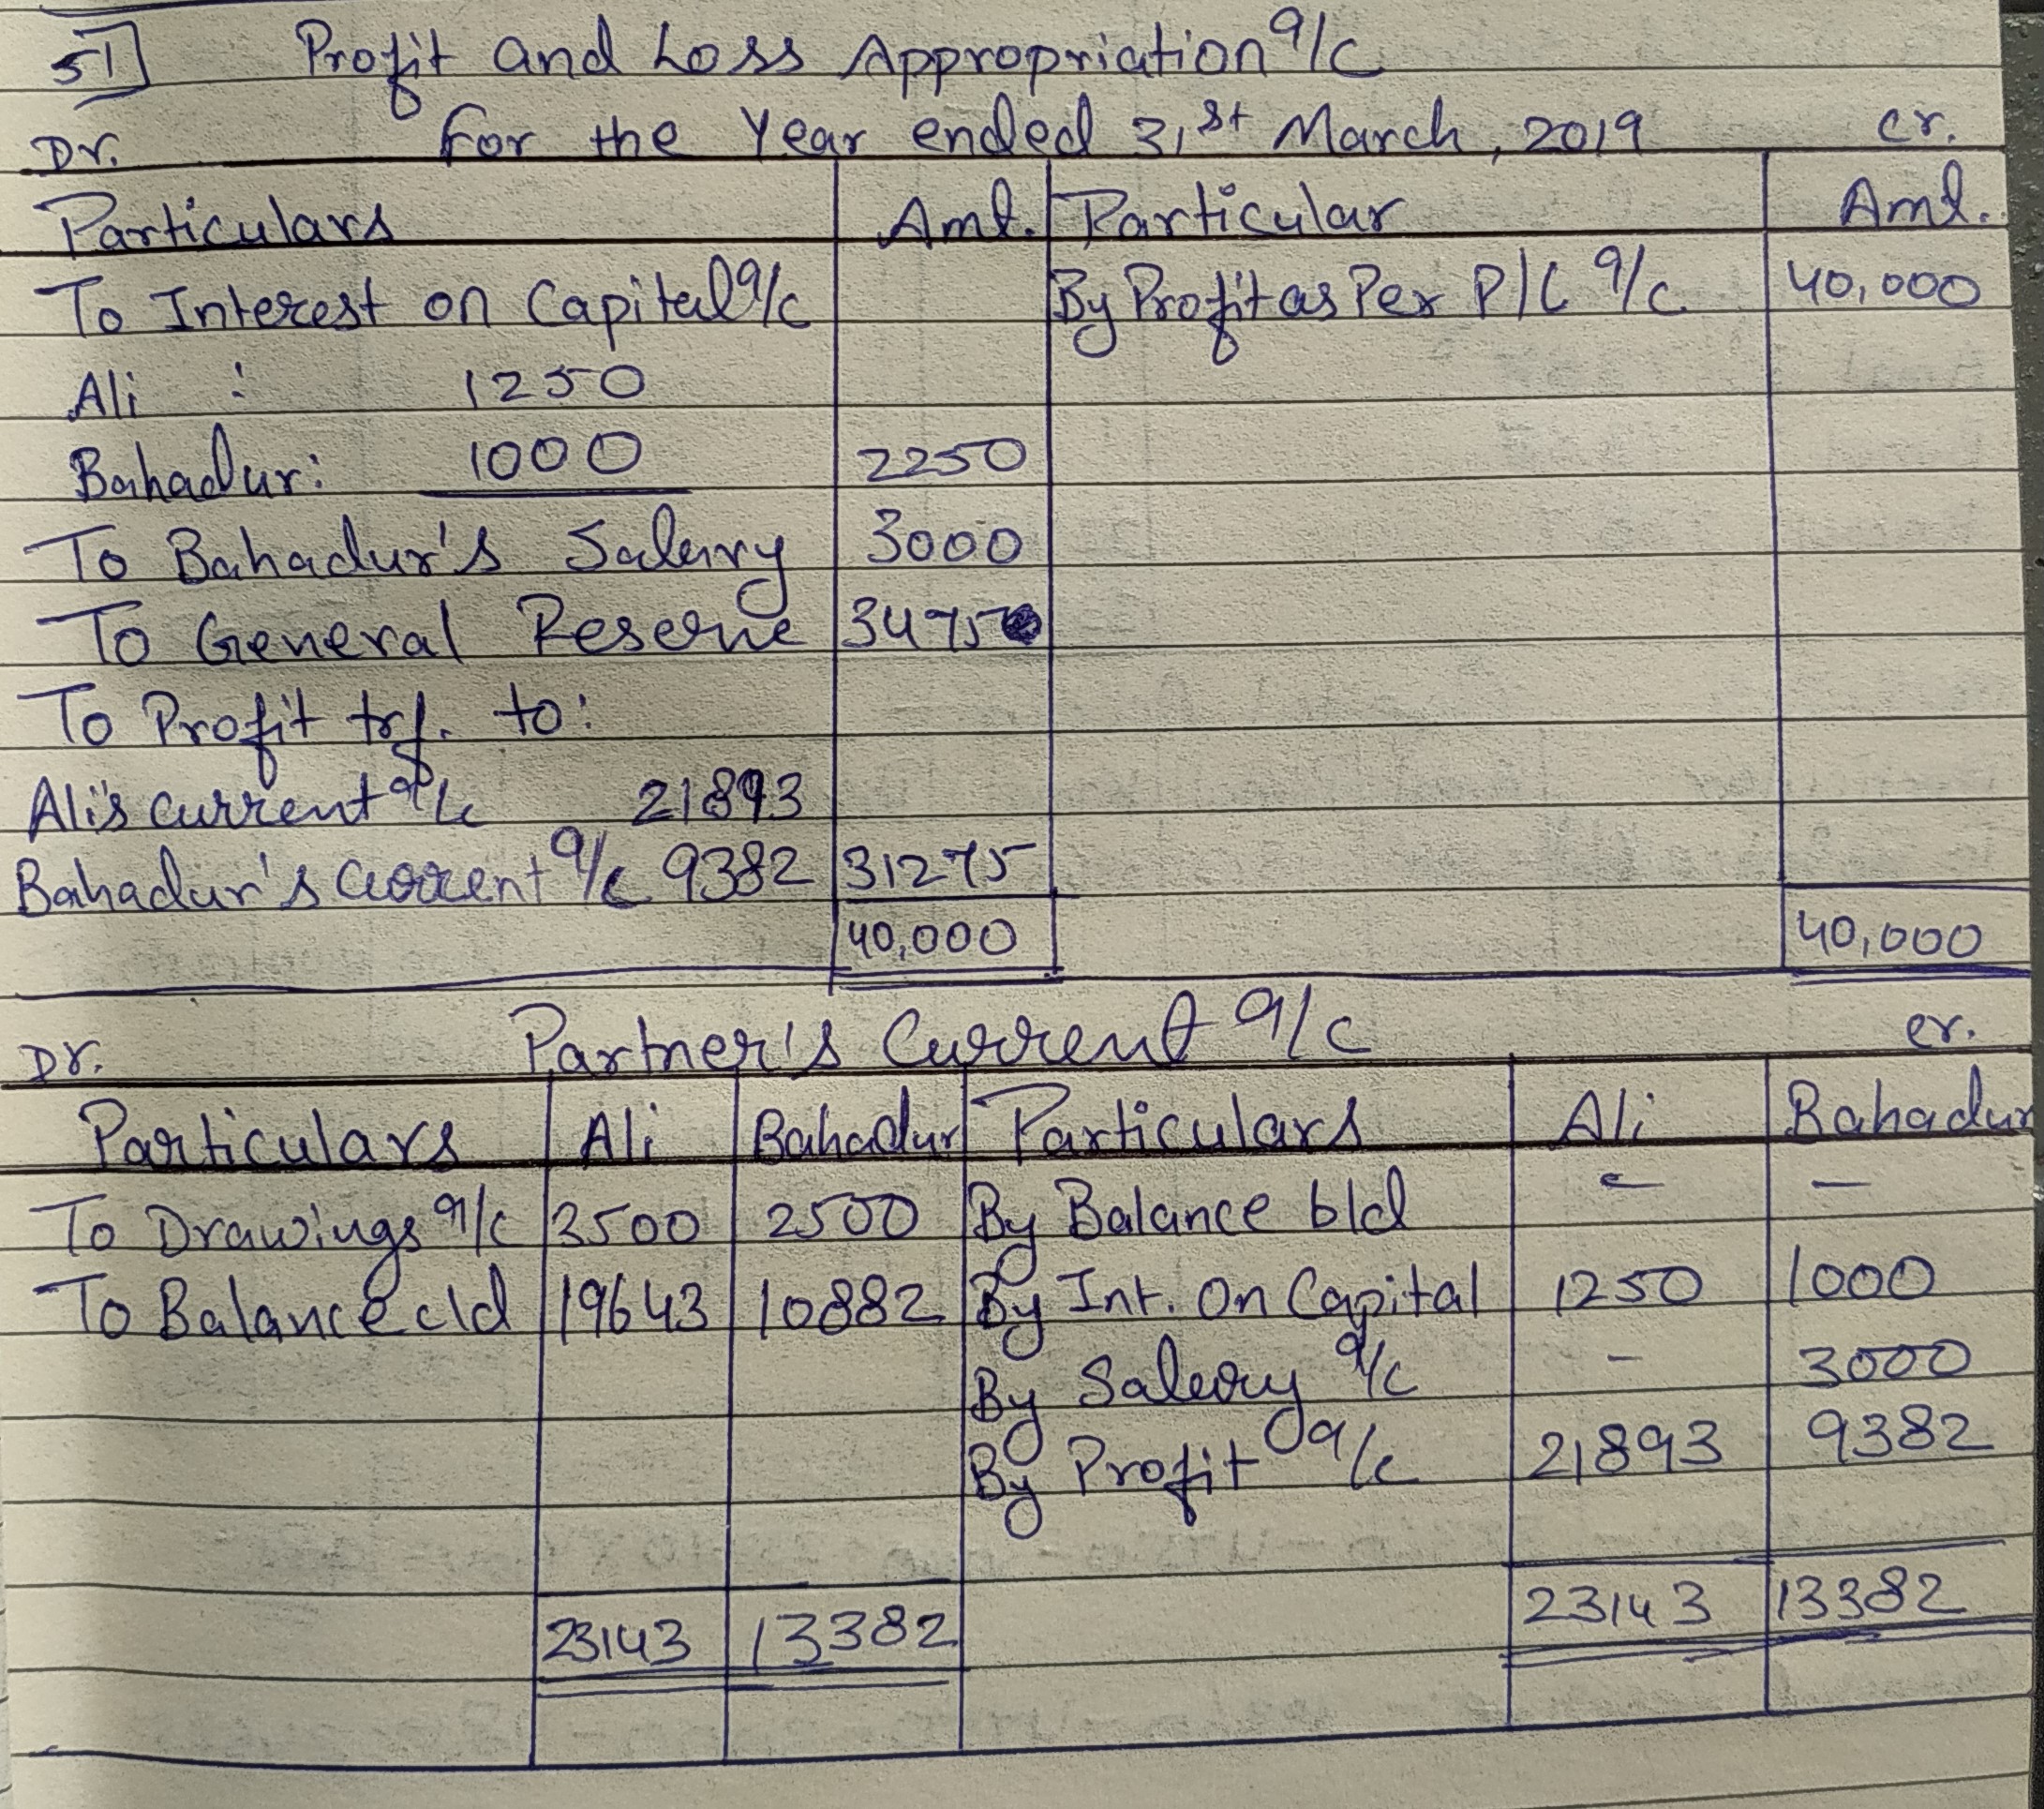 51 Profit and Loss Appropriation a/c
Dr. For the Year ended 31st March, 2019 Cr.
Particulars Amt. Particular Amt.
To Interest on Capital a/c By Profit as Per P/L a/c 40,000
Ali : 1250
Bahadur: 1000 2250
To Bahadur's Salary 3000
To General Reserve 3475
To Profit trf. to:
Ali's current a/c 21893
Bahadur's Current a/c 9382 31275
40,000 40,000
Dr. Partner's Current a/c Cr.
Particulars Ali Bahadur Particulars Ali Bahadur
To Drawings a/c 3500 2500 By Balance b/d - -
To Balance c/d 19643 10882 By Int. On Capital 1250 1000
By Salary a/c - 3000
By Profit a/c 21893 9382
23143 13382 23143 13382